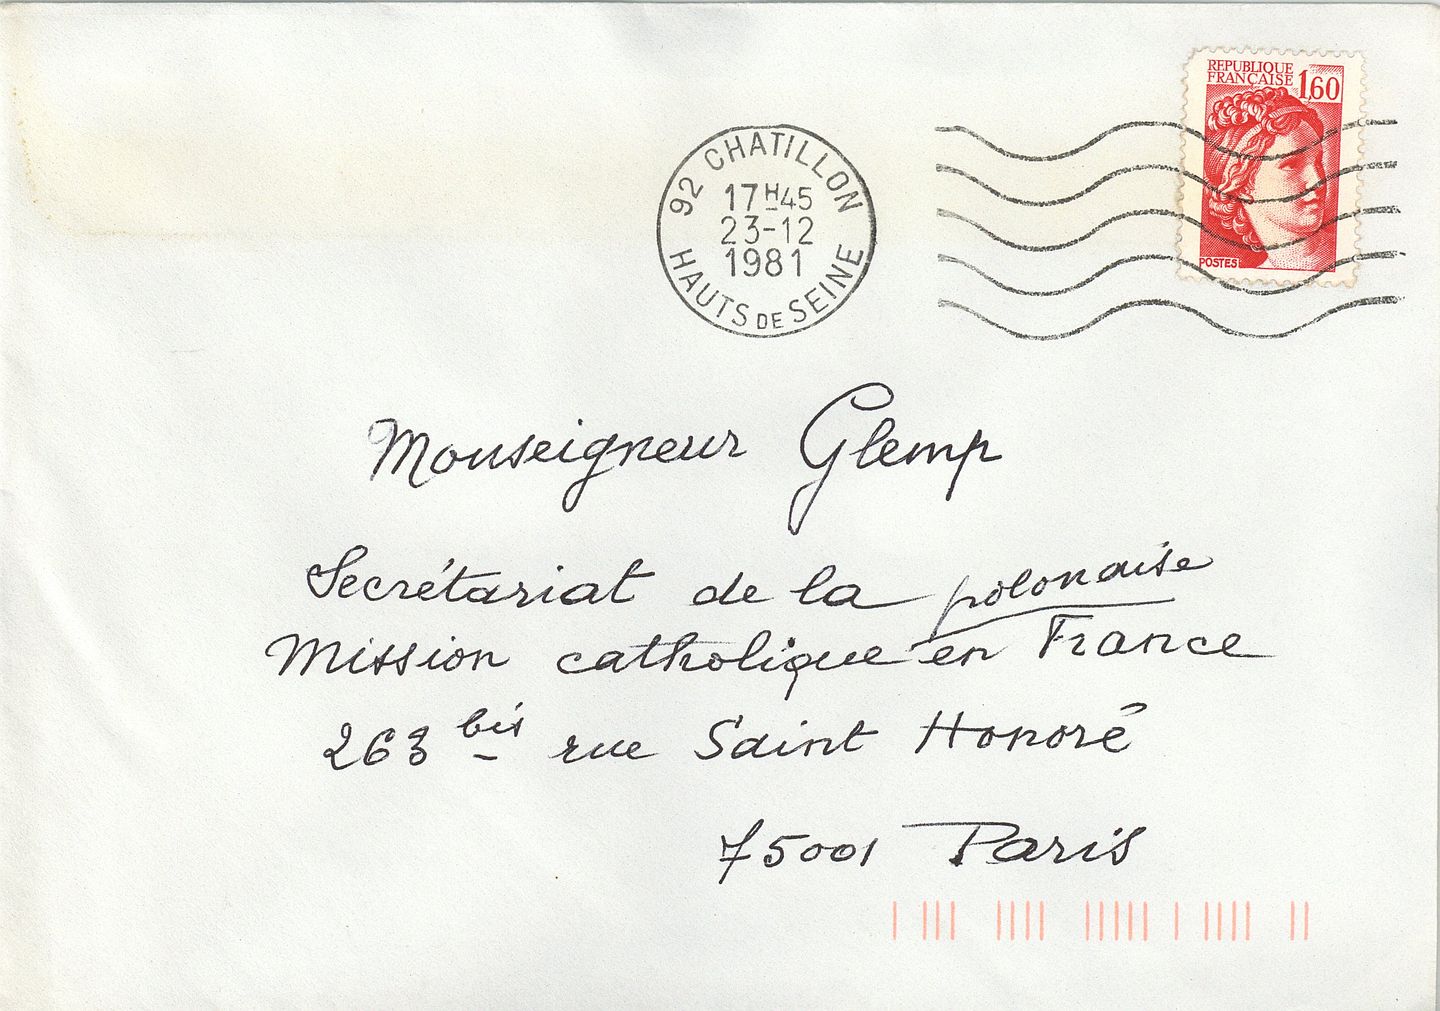 REPUBLIQUE
FRANÇAISE 1,60
POSTES
92 CHATILLON
17H45
23-12
1981
HAUTS DE SEINE
Monseigneur Glemp
Secrétariat de la polonaise
Mission catholique en France
263 bis rue Saint Honoré
75001 Paris